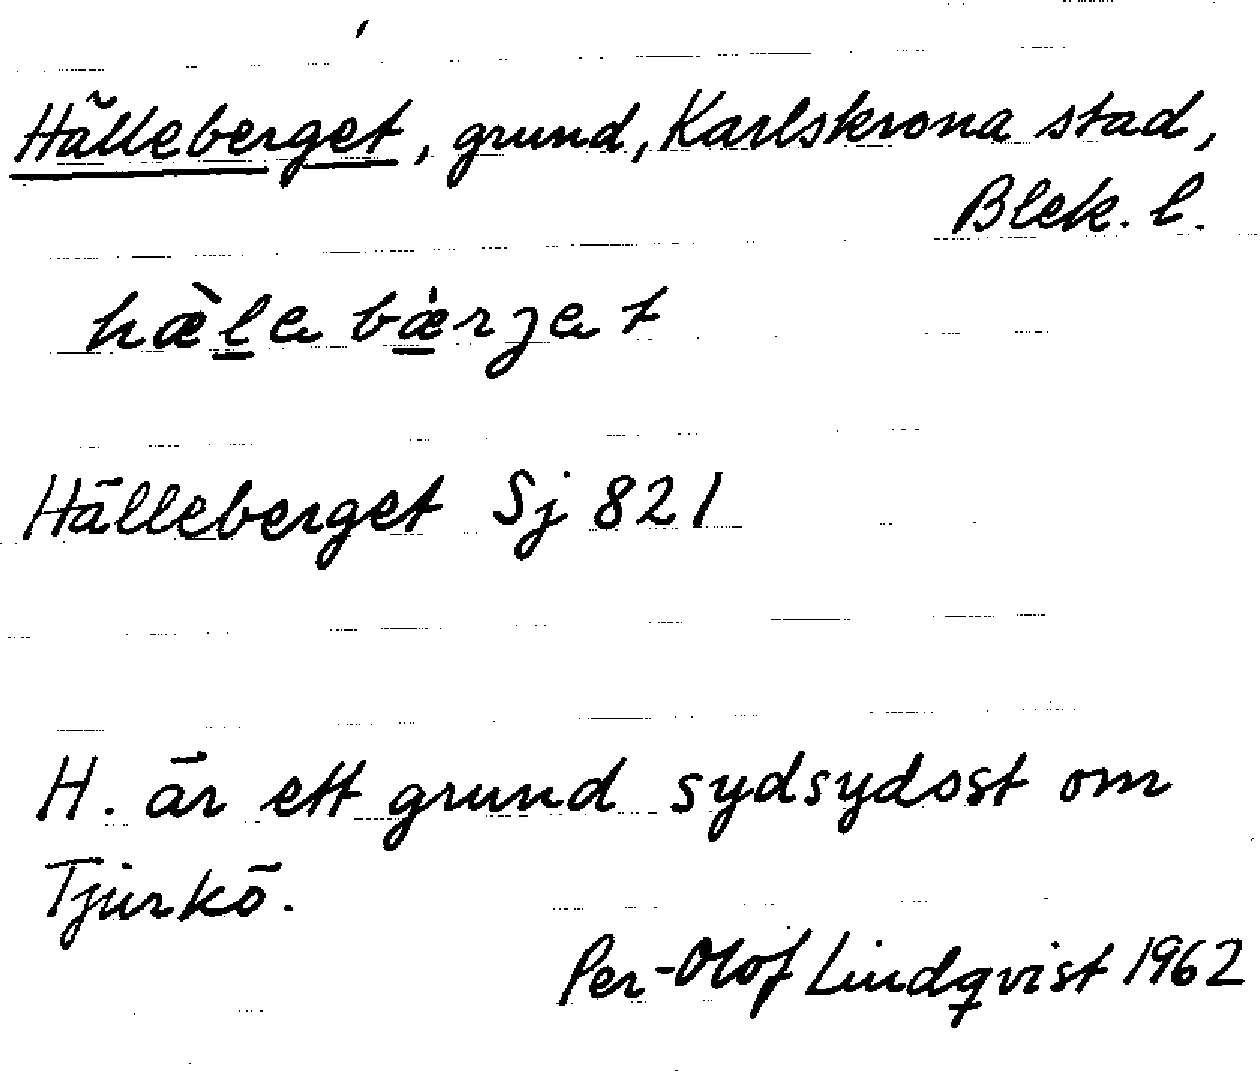 Hälleberget, grund, Karlskrona stad,
Blek. l.
hæ̀l̲e bǽ̲rjet
Hälleberget Sj 821
H. är ett grund sydsydost om
Tjurkö.
Per-Olof Lindqvist 1962